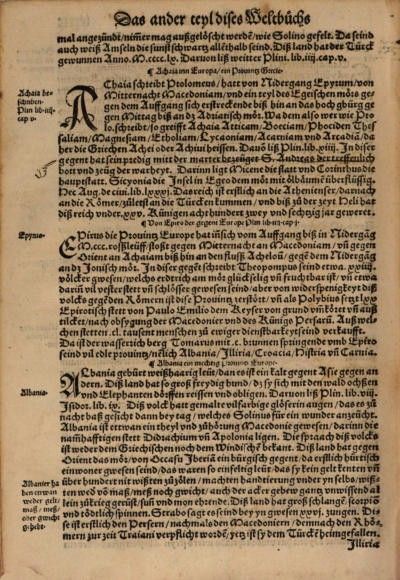 Das ander teyl dises Weltbůchs
mal angezündt/nim̃er mag außgelöscht werdē/ wie Solino gefelt. Da seind
auch weiß Amseln die sunst schwartz allēthalb seind. Diß land hat der Türck
gewunnen Anno. M.cccc.lx. Daruon liß weitter Plini. lib.iiij.cap.v.
¶ Achaia inn Europa/ ein Prouintz Grecie
Achaia be
schriben.
Plin lib-iiij-
cap v-
AChaia schreibt Ptolomeus/ hatt von Nidergang Epyrum/ von
Mitternacht Macedoniam/ vnd ein teyl des Egeischen mörs ge
gen dem Auffgang sich erstreckende biß hin an das hoch gbürg ge
gen Mittag biß an dz Adriatisch mör. Wa dem also wer wie Pto
lo.schreibt/so greifft Achaia Atticam/Boetiam/Phociden Thes
saliam/Magnesiam/Etholiam/Lycaoniam/Acarniam vnd Arcadiā/da
her die Griechen Achei oder Achiui heissen. Dauō liß Plin.lib.xiiij. In diser
gegent hat sein predig mit der marter bezeüget S. Andreas der treffenlich
bott vnd zeüg der warheyt. Darinn ligt Micene die statt vnd Corinthus die
hauptstatt. Sicyonia die Insel in Egeo dem mör mit ölbäum̃ überflüssig.
Vec Aug.de ciui.lib.xxxj. Daß reich ist erstlich an die Athenienser/darnach
an die Römer/zületst an die Türcken kummen/ vnd biß zů der zeyt Heli hat
diß reich vnder.xxv. Künigen achthundert zwey vnd sechtzig jar geweret.
¶ Von Epiro der gegent Europe Plin lib-iiij-cap j-
Epyrus-
EPirus die Prouintz Europe hat in̄ sich vom Auffgang biß in Nidergäg
M.ccc.roßleüff/stoßt gegen Mitternacht an Macedoniam/ vn̄ gegen
Orient an Achaiam biß hin an den flusß Acheloū/ gegē dem Nidergāg
an dz Jonisch mör. In diser gegēt schreibt Theopompus seind etwa.xxiiij.
völcker gewesen/welche erdtrich am mör glückselig vn̄ fruchtbar ist/ vn̄ etwa
darin̄ vil vesterstett vn̄ schlösser gewesen seind/aber von widerspenigkeyt diß
volcks gegē den Römern ist dise Prouintz verstört/vn̄ als Polybius setzt lxx
Epirotisch stett von Paulo Emilio dem Keyser von grund vn̄ kört vn̄ auß
gilckt/nach obsygung der Macedonier vnd des Künigs Persarū. Auß wel-
chen stetten.cl. tausent menschen zů ewiger dienstbarkeyt seind verkaufft.
Da ist der wasserich berg Tomarus mit.c.brunnen springende vmb Epiro
seind vil edle prouintz/nēlich Albania/ Illiria/ Croacia/ Histria vn̄ Carnia.
¶ Albania ein mechtig Prouintz Europe-
Albania-
ALbania gebürt weißhaarig leüt/dan es ist ein kalt gegent Asie gegen an
dern. Diß land hat so groß freydig hund/ dz sy sich mit den wald ochssen
vnd Elephanten dörffen reissen vnd obligen. Daruon liß Plin.lib.viij.
Isidor.lib.ix. Diß volck hatt gemalte vilfarbige glöserin augen/das es zů
nacht baß gesicht dann bey tag/ welches Solinus für ein wunder anzeücht.
Albania ist ettwan ein theyl vnd zůhörung Macedonie gewesen/darinn die
nam̃hafftigen stett Didrachium vn̄ Apolonia ligen. Die spraach diß volcks
ist weder dem Griechischen noch den Windischē bekant. Diß land hat gegen
Orient das mör/von Occasu Iberiā ein bürgisch gegent. da erstlich bürisch
einwoner gewesen seind/das waren so einfeltig leüt das sy kein gelt kenten vn̄
Albanier ha
ben etwan
weder gelt/
maß/ meß/
ober gwicht
gehebt-
über hundert nit wißten zůzölen/ machten handtierung vnder yn selbs/ wiß-
ten wed vō maß/meß noch gwicht/ auch der acker gebew gantz vnwissend al
lein zů krieg gerüst/sun̄ vnd mon ehrende. Diß land hat groß schlangē/scorpiō
vnd tödtlich spinnen. Strabo sagt es seind bey yn gewesen.xxvj.zungen. Di-
se ist erstlich den Persern/nachmals den Macedoniern/demnach den Rhö-
mern zur zeit Traiani verpflicht wordē/yetz ist sy dem Türckē heingefallen.
Illiria